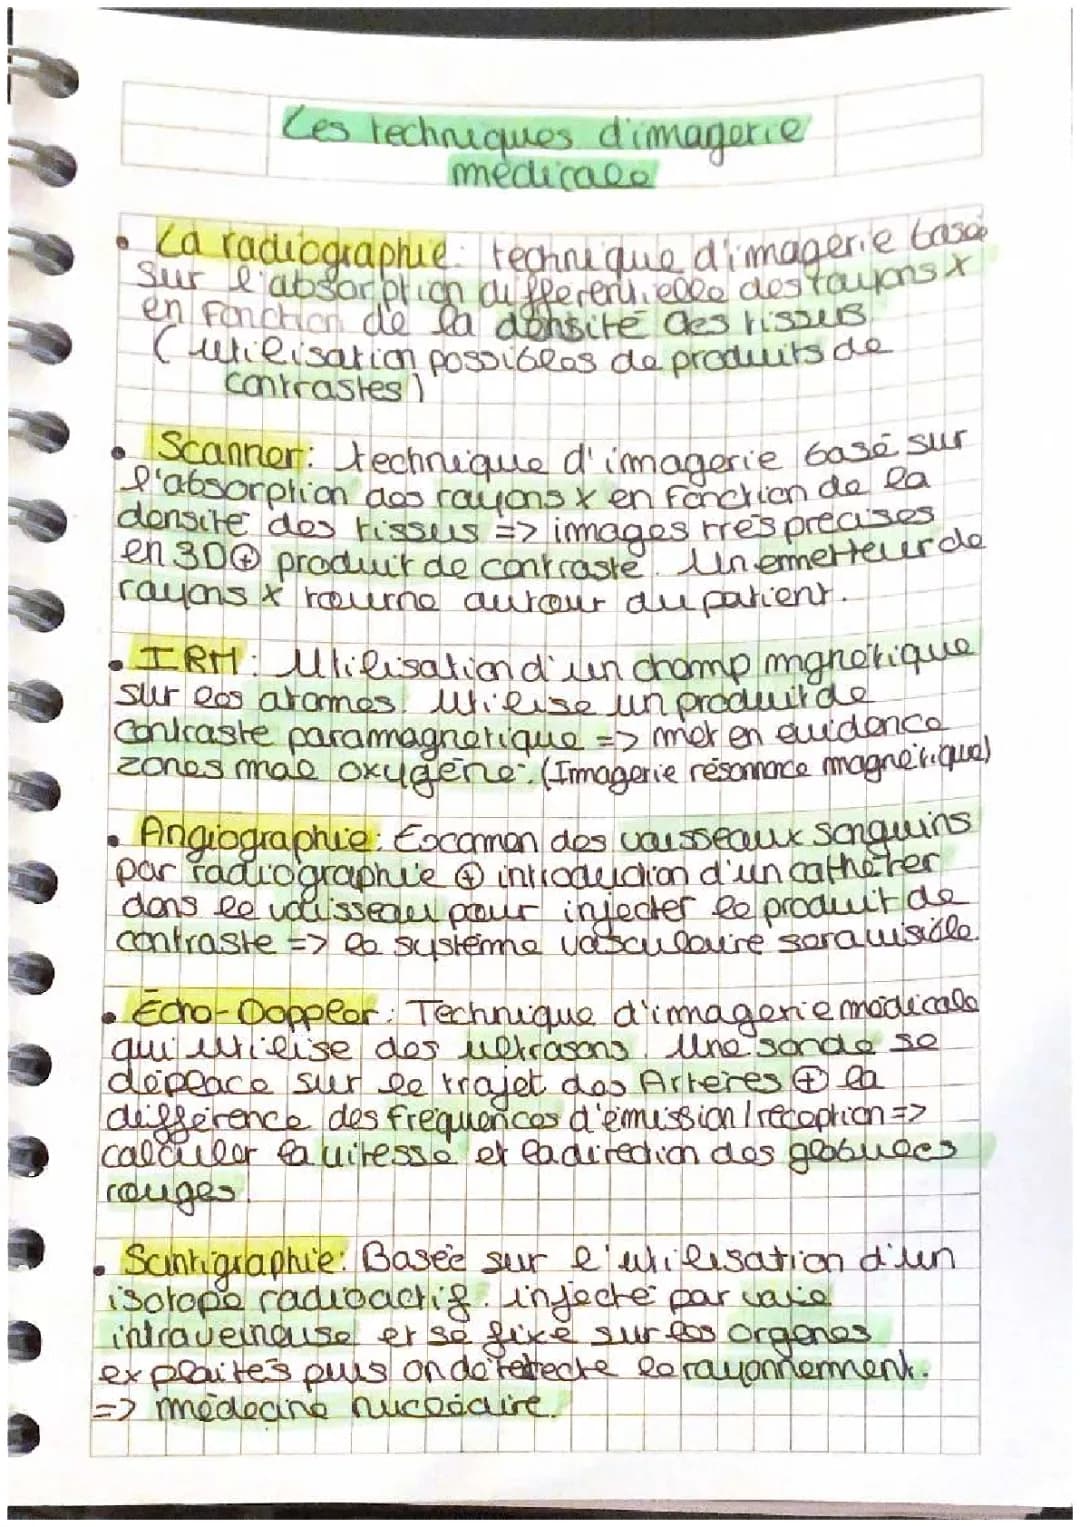 Les techniques d'imagerie
médicale
• La radiographie: technique d'imagerie basée
sur l'absorption differentielle des rayons X
en fonction de la densité des tissus.
(utilisation possibles de produits de
contrastes)
• Scanner: technique d'imagerie basé sur
l'absorption des rayons X en fonction de la
densité des tissus => images très précises
en 3D ⊕ produit de contraste. Un emetteur de
rayons X tourne autour du patient.
• IRM: Utilisation d'un champ mgnétique
sur les atomes. Utilise un produit de
contraste paramagnétique => met en evidence
zones mal oxygéne. (Imagerie résonnace magnétique)
• Angiographie: Examen des vaisseaux sanguins
par radiographie ⊕ introduction d'un cathéter
dans le vaisseau pour injecter le produit de
contraste => le système vasculaire sera visible.
• Écho-Doppler: Technique d'imagerie médicale
qui utilise des ultrasons. Une sonde se
déplace sur le trajet des Artères ⊕ la
différence des fréquences d'émission/réception =>
calculer la vitesse et la direction des globules
rouges.
• Scintigraphie: Basée sur l'utilisation d'un
isotope radioactif. injecté par voie
intraveineuse et se fixe sur les organes
exploités puis on détetecte le rayonnement.
=> médecine nucléaire.